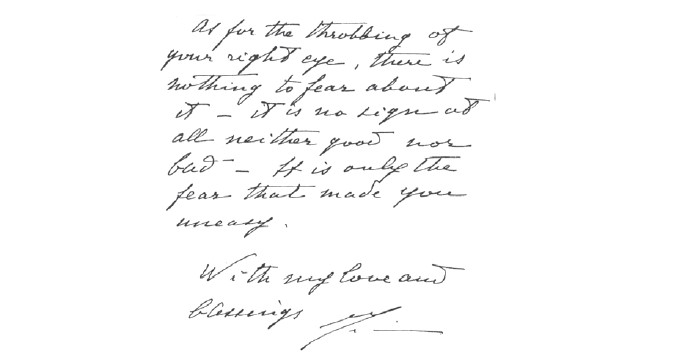 As for the throbbing of
your right eye, there is
nothing to fear about
it – it is no sign at
all neither good nor
bad – It is only the
fear that made you
uneasy.
With my love and
blessings